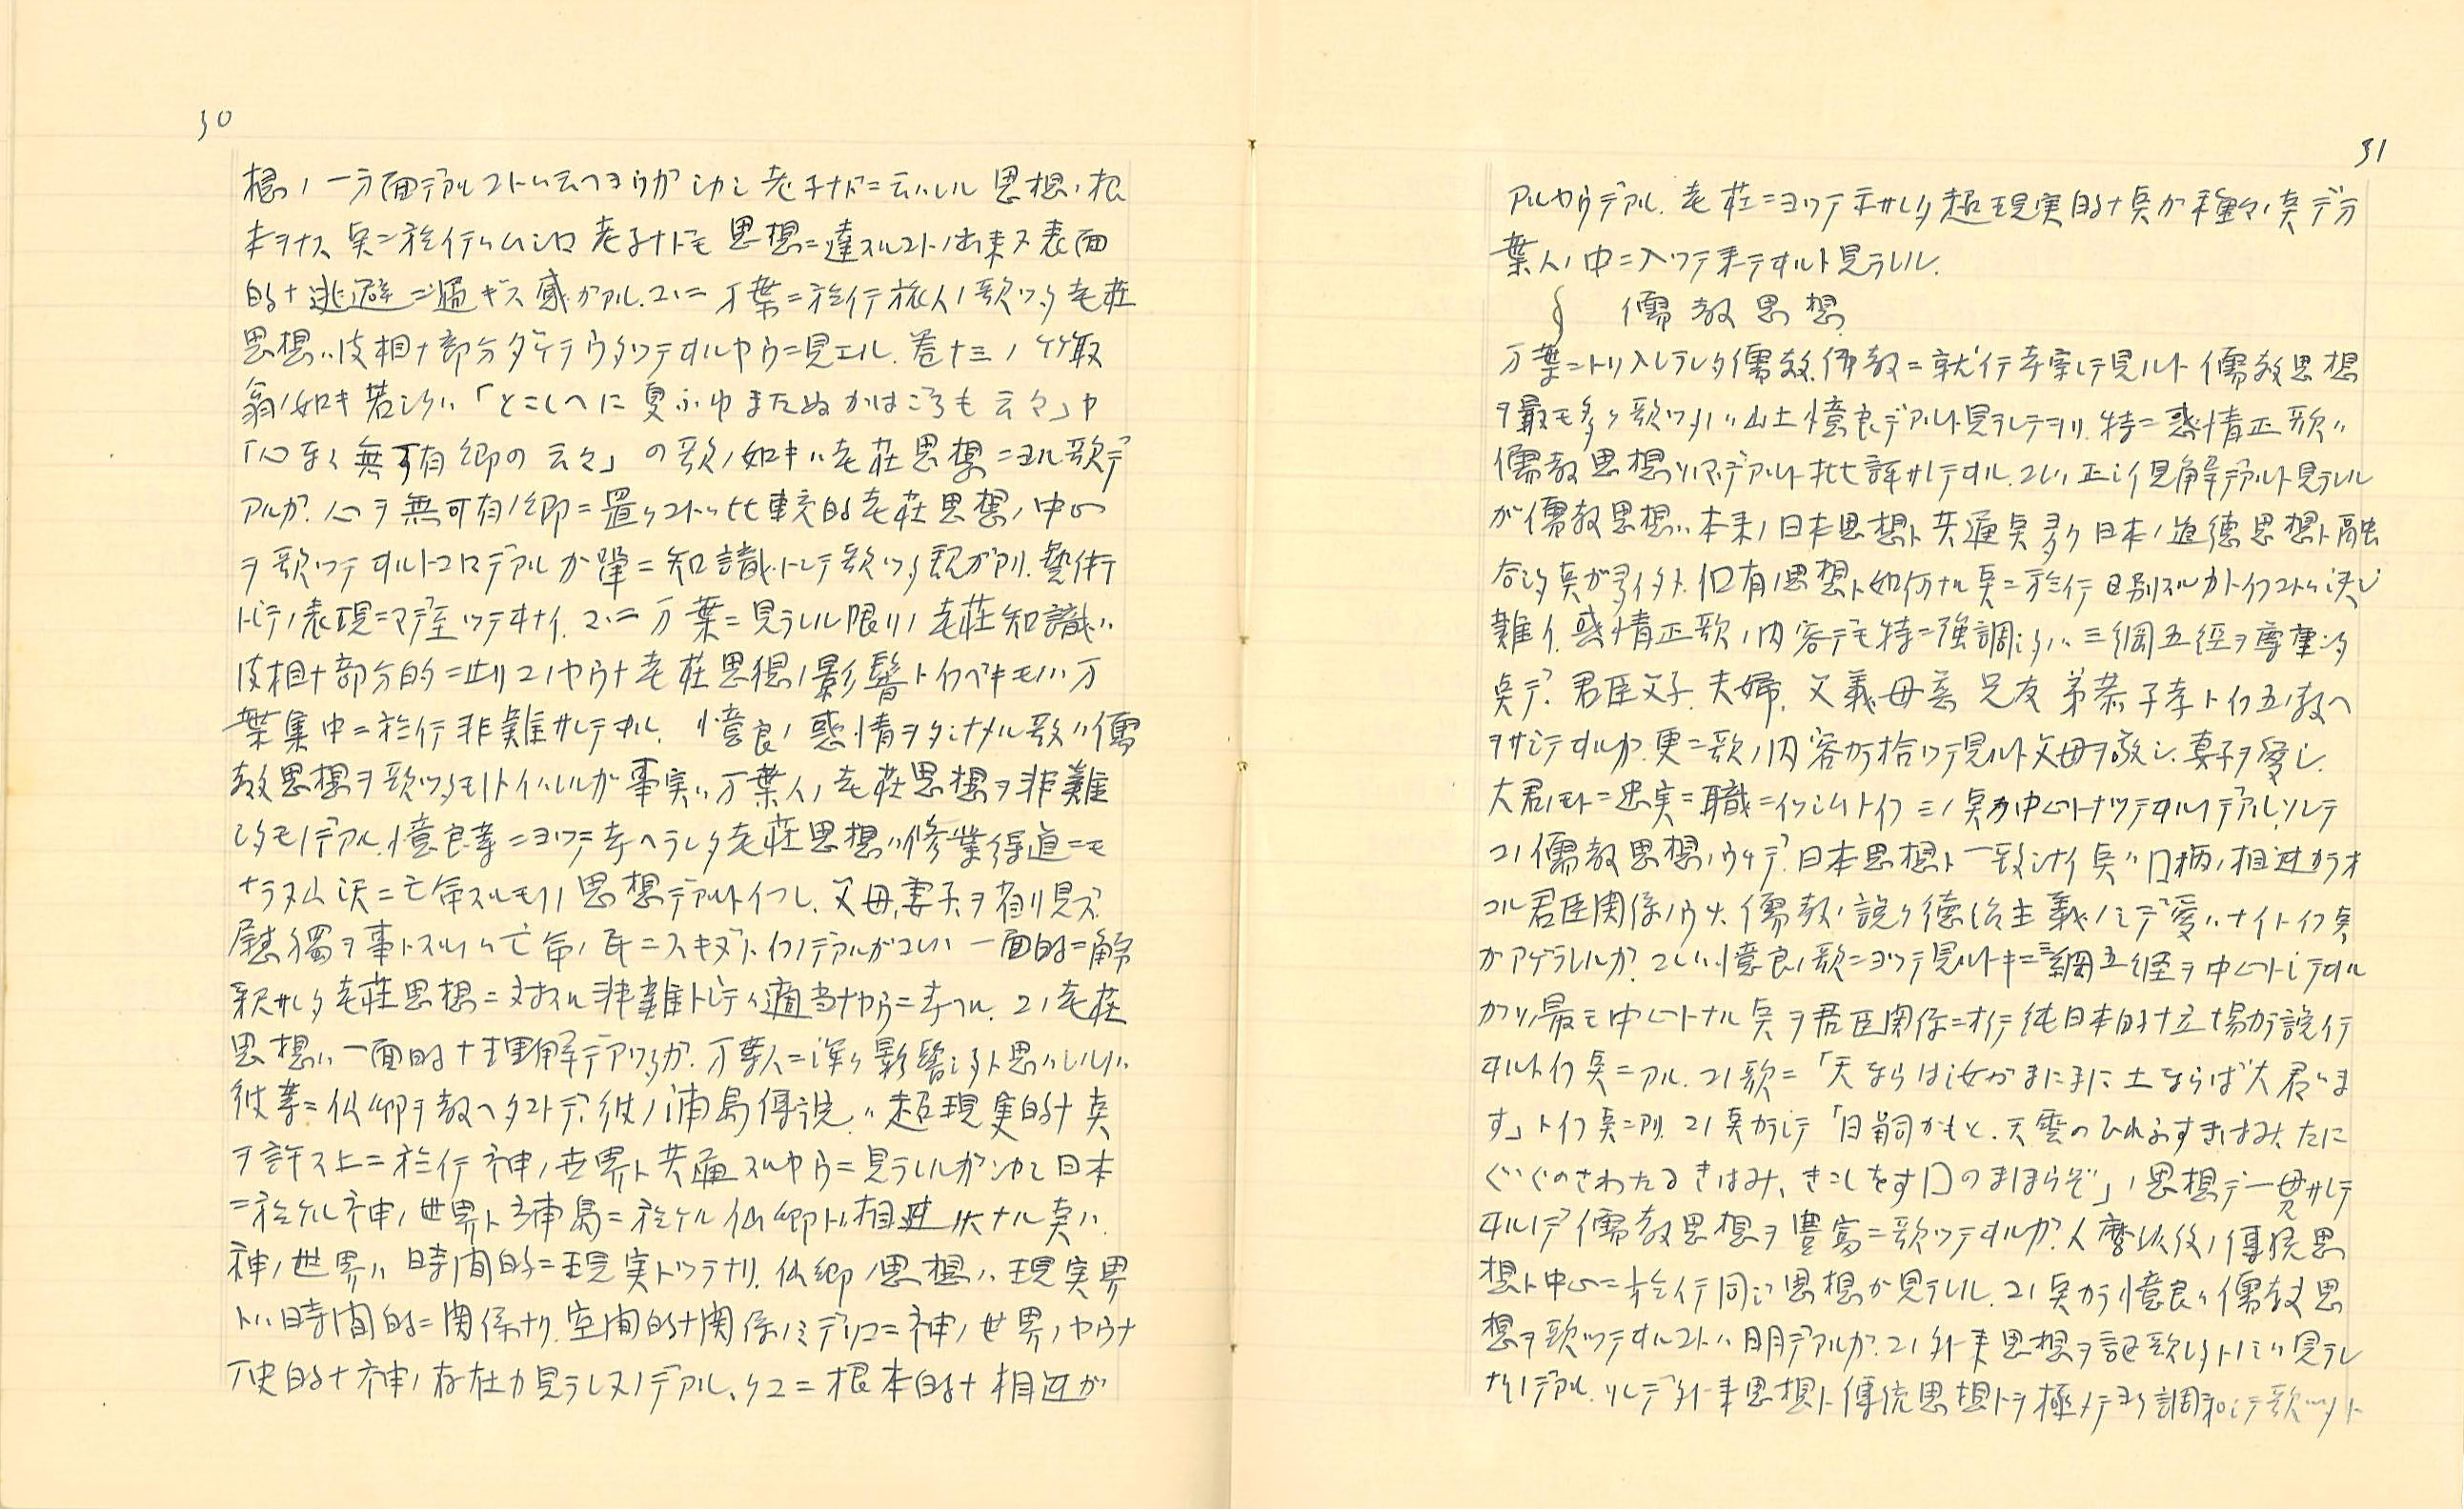 30
想ノ一方面デアルコトハ云ヘヨウガシカシ老子ナドニ云ハレル思想ノ根
本ヲナス点ニ於イテハムシロ老子ナドモ思想ニ達スルコト出来ズ表面
的ナ逃避ニ過ギヌ感ガアル.コヽニ万葉ニ於イテ旅人ノ歌ツタ老荘
思想ハ皮相ナ部分ダケヲウタツテオルヤウニ見エル.巻十三ノ竹取
翁ノ如キ若シクハ「とこしへに夏ふゆまたぬかはころも云々」ヤ
「心をく無可有郷の云々」の歌ノ如キハ老荘思想ニヨル歌デ
アルガ.心ヲ無可有ノ郷ニ置クコトハ比較的老荘思想ノ中心
ヲ歌ツテオルトコロデアルガ單ニ知識トシテ歌ツタ観ガアリ.藝術
トシテノ表現ニマデ至ツテオナイ.コヽニ万葉ニ見ラレル限リノ老荘知識ハ
皮相ナ部分的ニ止リコノヤウナ老荘思想ノ影響トイフベキモノハ万
葉集中ニ於イテ非難サレテオル.憶良ノ惑情ヲタシナメル歌ハ儒
教思想ヲ歌ツタモノトイハレルガ事実ハ万葉人ノ老荘思想ヲ非難
シタモノデアル.憶良等ニヨツテ考ヘラレタ老荘思想ハ修業得道ニモ
ナラヌ山沢ニ亡命スルモノノ思想デアルトイフシ.父母,妻子ヲ省リ見ズ
慰獨ヲ事トスルハ亡命ノ民ニスギヌトイフノデアルガコレハ一面的ニ解
釈サレタ老荘思想ニ対スル非難トシテハ適当ナヤウニ考フル.コノ老荘
思想ハ一面的ナ理解デアツタガ.万葉人ニ深ク影響シタト思ハレルハ
彼等ニ仙郷ヲ教ヘタコトデ.彼ノ浦島傳説ハ超現実的ナ点
ヲ許ス上ニ於イテ神ノ世界ト共通スルヤウニ見ラレルガシカシ日本
ニ於ケル神ノ世界ト浦島ニ於ケル仙郷トハ相違大ナル点ハ
神ノ世界ハ時間的ニ現実トツラナリ.仙郷ノ思想ハ現実界
トハ時間的ニ関係ナク.空間的ナ関係ノミデソコニ神ノ世界ノヤウナ
歴史的ナ神ノ存在ガ見ラレヌノデアル.ソコニ根本的ナ相違ガ
31
アルヤウデアル.老荘ニヨツテ示サレタ超現実的ナ点ガ種々ノ点デ万
葉人ノ中ニ入ツテ来テオルト見ラレル.
§ 儒教思想
万葉ニトリ入レラレタ儒教,佛教ニ就イテ考察シテ見ルト儒教思想
ヲ最モ多ク歌ツタノハ山上憶良デアルト見ラレテヲリ.特ニ惑情正歌ハ
儒教思想ソノマヽデアルト批評サレテオル.コレハ正シイ見解デアルト見ラレル
ガ儒教思想ハ本来ノ日本思想ト共通点多ク日本ノ道徳思想ト融
合シタ点ガ多イタメ.固有ノ思想ト如何ナル点ニ於イテ区別スルカトイフコトハ決シ
難イ.惑情正歌ノ内容デモ特ニ強調シタノハ三綱五経ヲ尊重シタ
点デ.君臣父子.夫婦.父義母慈兄友弟恭子孝トイフ五ノ教ヘ
ヲサシテオルガ.更ニ歌ノ内容カラ拾ツテ見ルト父母ヲ敬シ.妻子ヲ愛シ.
大君ノモトニ忠実ニ職ニイソシムトイフ三ノ点ガ中心トナツテオルノデアル.ソシテ
コノ儒教思想ノウチデ.日本思想ト一致シナイ点ハ国柄ノ相違カラオ
コル君臣関係ノウチ.儒教ノ説ク徳治主義ノミデ愛ハナイトイフ点
ガアゲラレルガ.コレハ憶良ノ歌ニヨツテ見ルトキニ三綱五経ヲ中心トシテオル
ガソノ最モ中心トナル点ヲ君臣関係ニオイテ純日本的ナ立場カラ説イテ
オルトイフ点ニアル.コノ歌ニ「天ならは汝がまにまに土ならば大君います」
トイフ点ニアリ.コノ点カラシテ「日嗣かもと.天雲のむかふすきはみ,たに
ぐくのさわたるきはみ、きこしをす国のまほらぞ」ノ思想デ一貫サレテ
オルノデ儒教思想ヲ豊富ニ歌ツテオルガ.人麿以後ノ傳統思
想ト中心ニ於イテ同ジ思想ガ見ラレル.コノ点カラ憶良ハ儒教思
想ヲ歌ツテオルコトハ明デアルガ.コノ外来思想ヲ謳歌シタトノミハ見ラレ
ナイノデアル.ソレデ外来思想ト傳統思想トヲ極メテヨク調和シテ歌ツタト